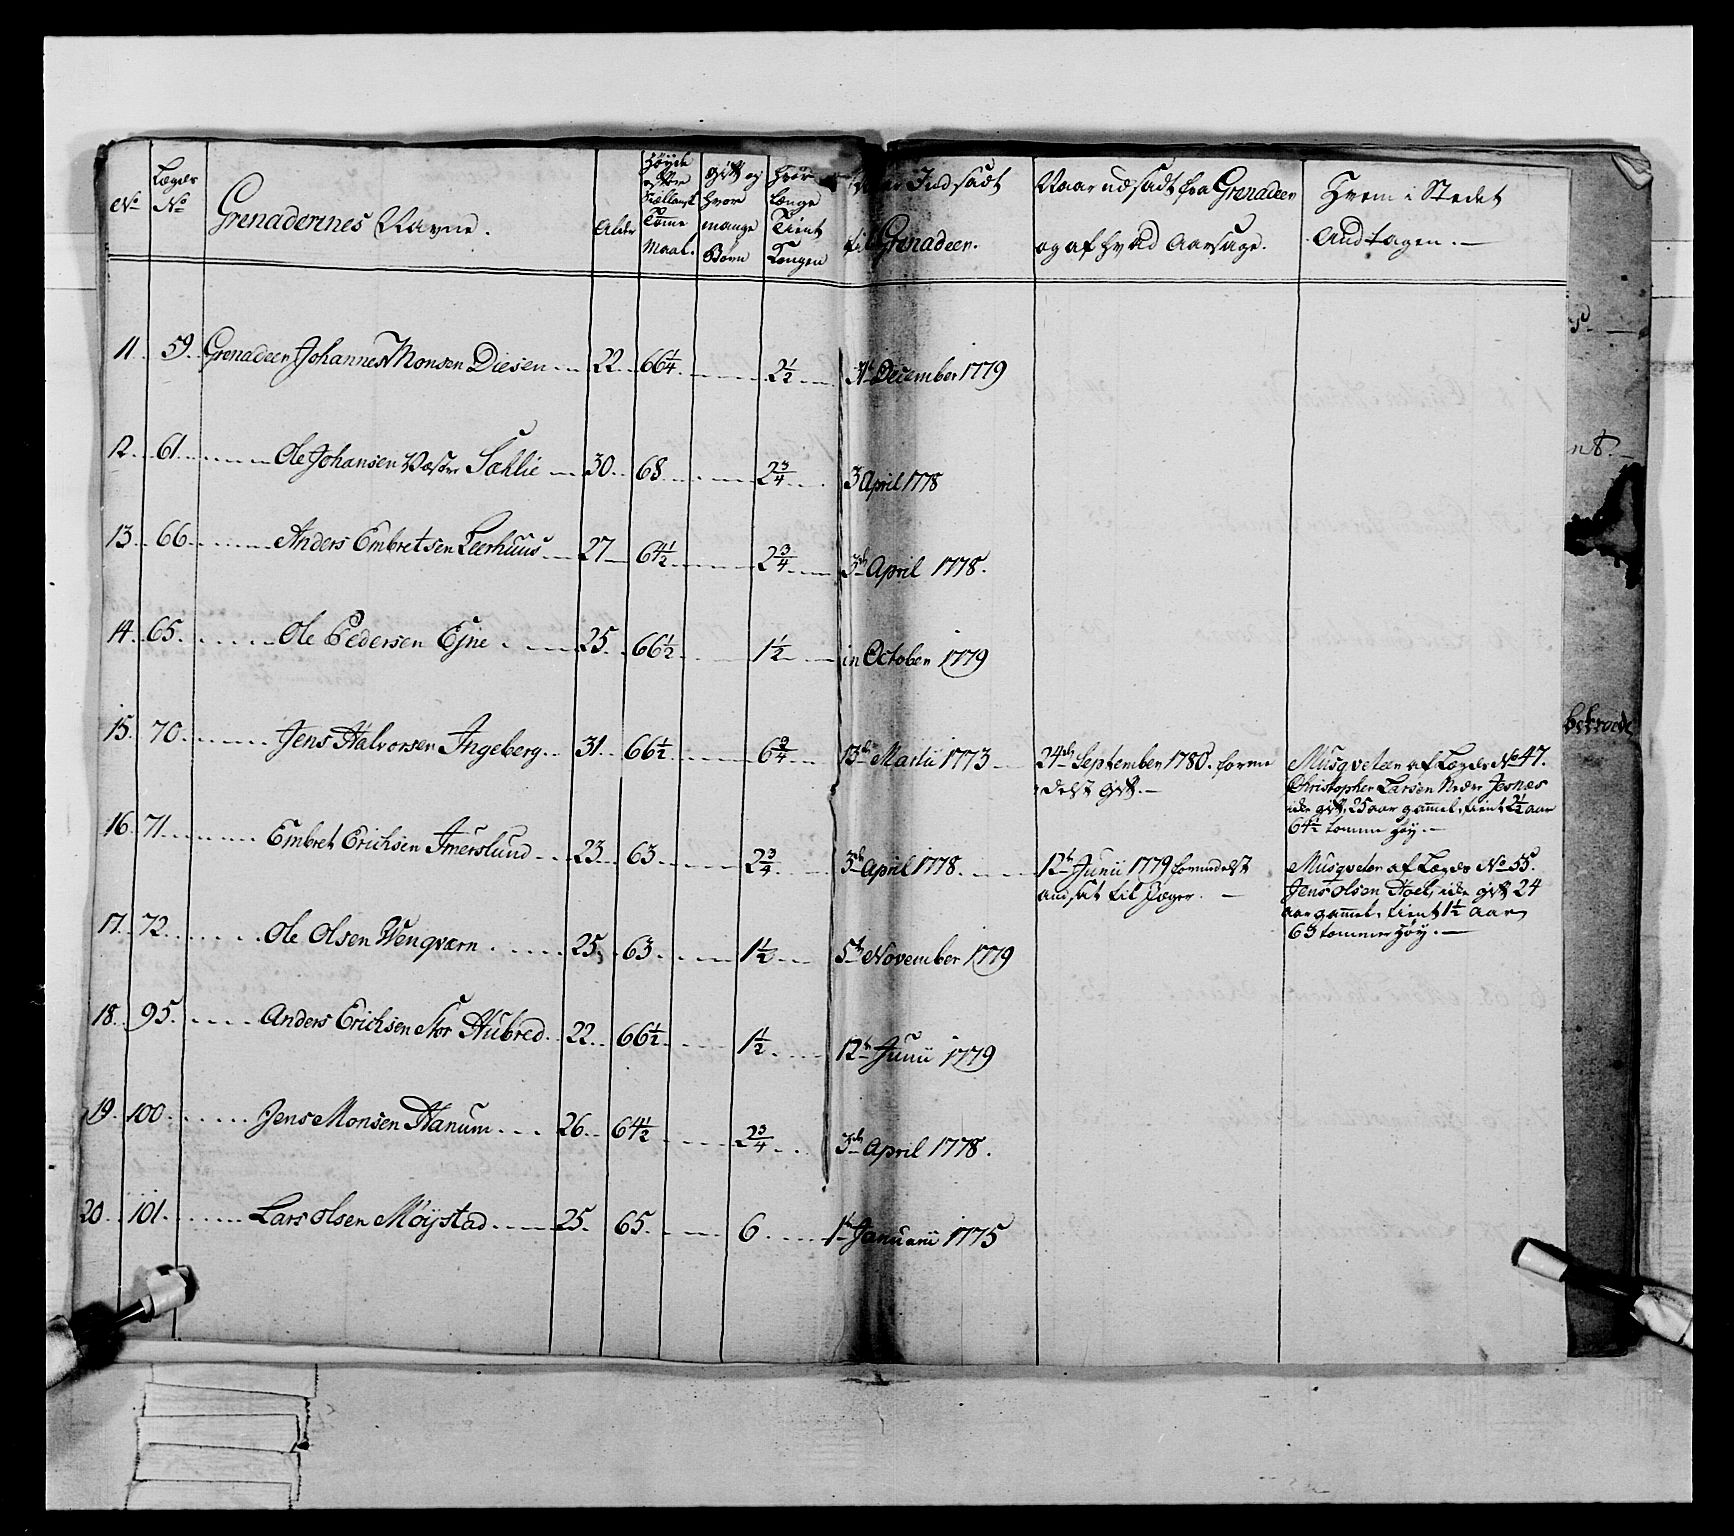 No
Lægds No
Grenaderernes Navne.
Alder
Høyde efter Siællandsk Tomme Maal.
gift og hvor mange Børn
Hvor Længe Tient Kongen
Naar Indsadt til Grenadeer.
Naar udsadt fra Grenadeer og af hvad Aarsage.
Hvem i Stedet Andtagen.
11. 59. Grenadeer Johannes Monsen Diesen 22 66 1/4 2 1/2 3de December 1779
12. 61. Ole Johansen Væstre Sæhlie 30. 68 2 3/4 3 April 1778
13. 66 Anders Embretsen Leerhuus 27 64 1/2 2 3/4 3de April 1778.
14. 65. Ole Pedersen Ejne 25. 66 1/2 1 1/2 in October 1779
15. 70. Jens Halvorsen Ingeberg 31. 66 1/2 6 3/4 13de Martii 1773 24de September 1780. formedelst gift. Musqveteer af Lægds No 47.
Christopher Larsen Nedre Jesnæs
icke gift, 25 aar gammel, tient 2 1/2 aar
64 1/2 tomme høy.
16. 71. Embret Erichsen Imerslund 23 63 2 3/4 3de April 1778. 12te Junii 1779 formedelst
andsat til Jæger.
Musqveteer af Lægds No 55.
Jens Olsen Hoel, icke gift 24
aar gammel, tient 1 1/2 aar
63 tommer høy.
17. 72. Ole Olsen Wengværn 25. 63 1 1/2 5te November 1779
18. 95. Anders Erichsen Stor Hubred. 22 66 1/2 1 1/2 12te Junii 1779
19. 100. Jens Monsen Hanum 26 64 1/2 2 3/4 3de April 1778.
20. 101. Lars Olsen Möystad 25. 65. 6 1te Januarii 1775